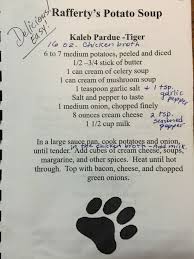 Rafferty's Potato Soup
Delicious
Easy!
Kaleb Pardue -Tiger
16 oz. Chicken broth
6 to 7 medium potatoes, peeled and diced
1/2 –3/4 stick of butter
1 can cream of celery soup
1 can cream of mushroom soup
1 teaspoon garlic salt + 1 tsp. garlic pepper
Salt and pepper to taste
1 medium onion, chopped finely
8 ounces cream cheese 2 tsp. seasoned pepper
1 1/2 cup milk
In a large sauce pan, cook potatoes and onion,
in the chicken broth - Add milk
until tender. Add cubes of cream cheese, soups,
margarine, and other spices. Heat until hot
through. Top with bacon, cheese, and chopped
green onions.